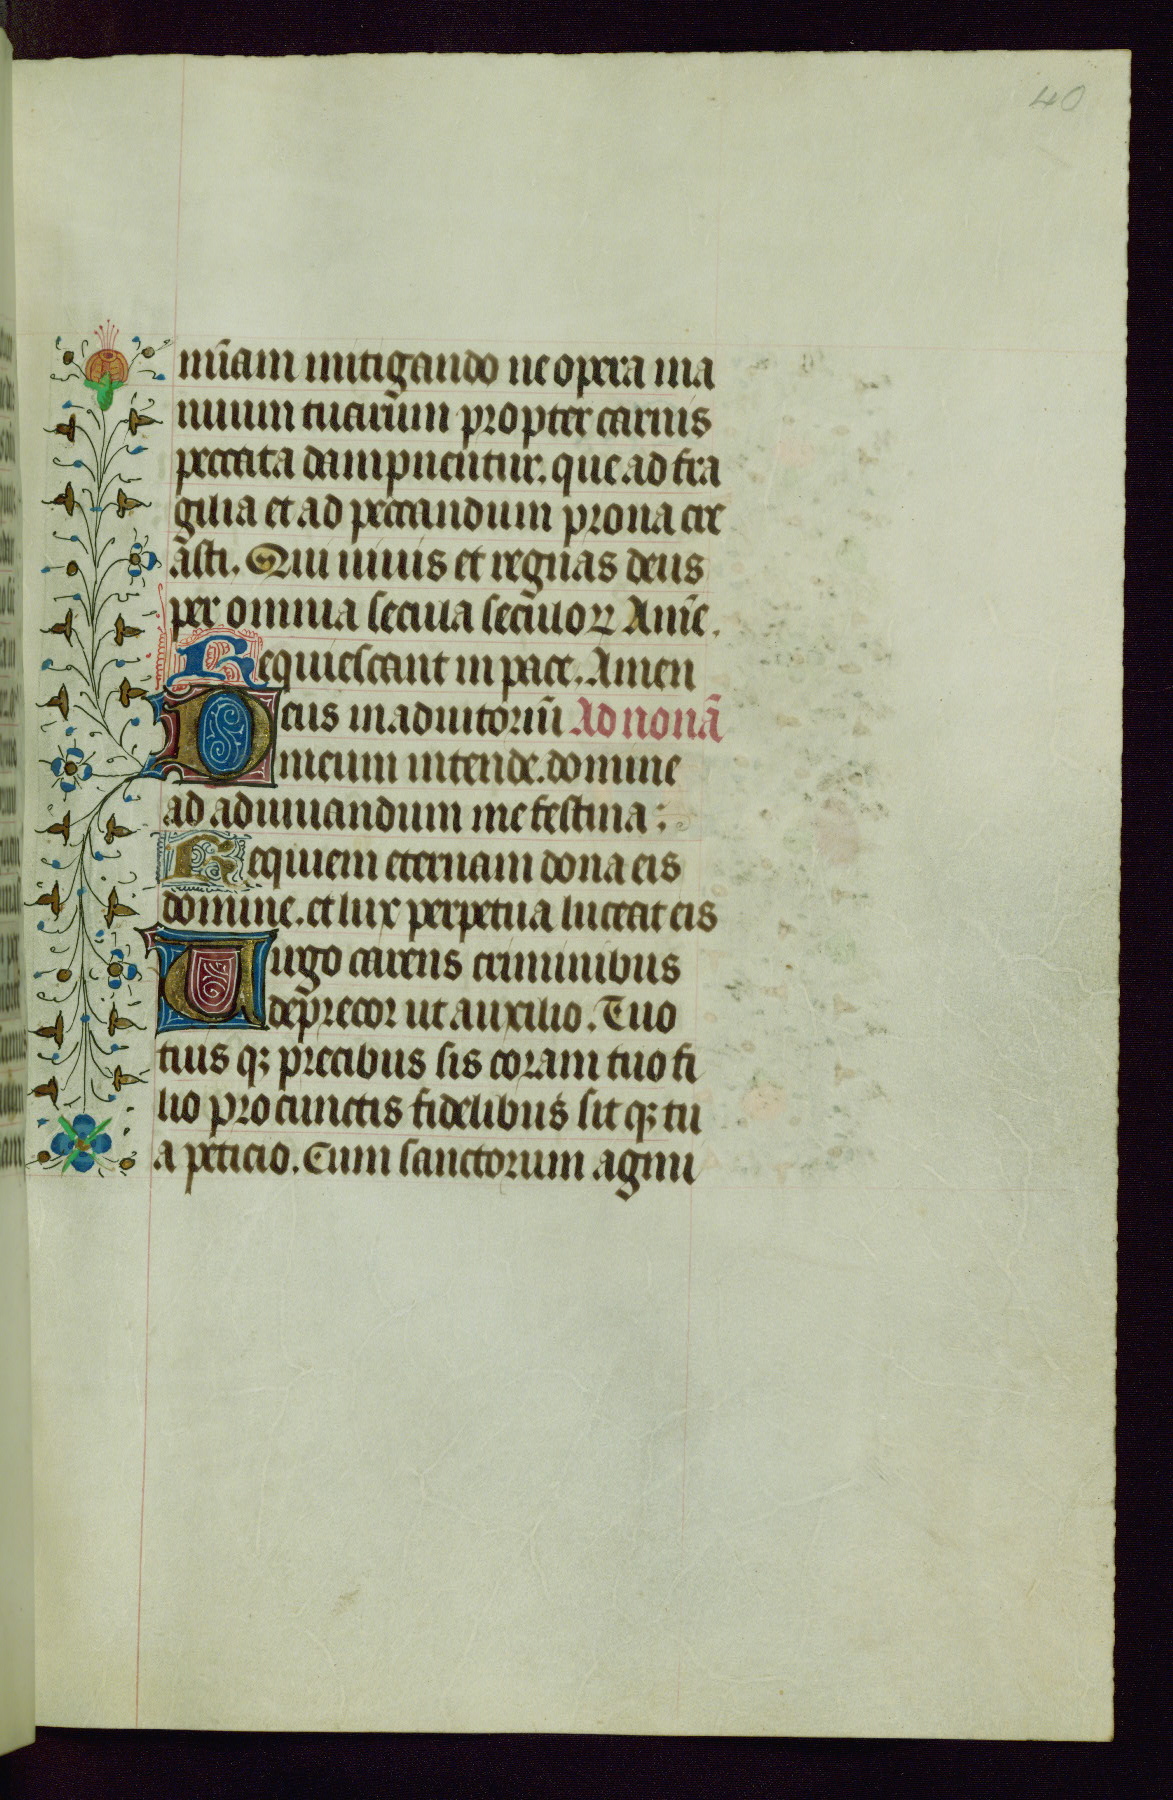 40
mīam mitigando ne opera ma
nuum tuarūm propter carnis
peccata dampnentur. que ad fra
gilia et ad peccandum prona cre
āsti. Qui uiuis et regnas deus
per omnia secula seculoꝝ Amē.
Requiescant in pace. Amen
Deus in adiutoriū Ad nonā
meum intende. domine
ad adiuuandum me festina:
Requiem eternam dona eis
domine. et lux perpetua luceat eis
Uirgo carens criminibus
dep̄recor ut auxilio. Tuo
tuis qꝫ precibus sis coram tuo fi
lio pro cunctis fidelibus sit qꝫ tu
a peticio. Cum sanctorum agmi